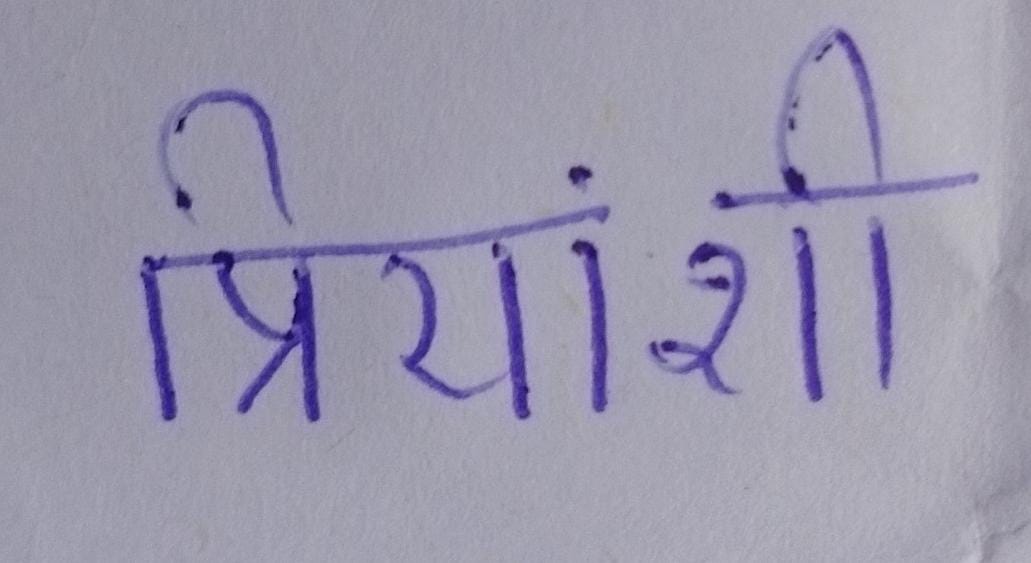 प्रियांशी